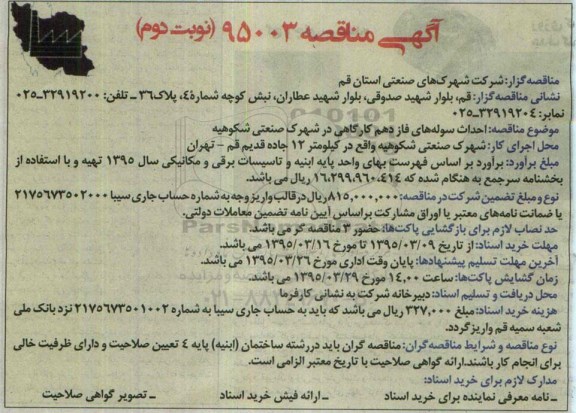 آگهی مناقصه ۹۵۰۰۳ (نوبت دوم)
مناقصه‌گزار: شرکت شهرک‌های صنعتی استان قم
نشانی مناقصه‌گزار: قم، بلوار شهید صدوقی، بلوار شهید عطاران، نبش کوچه شماره۴، پلاک۳۶ ـ تلفن: ۳۲۹۱۹۲۰۰-۰۲۵
نمابر: ۳۲۹۱۹۲۰۴-۰۲۵
موضوع مناقصه: احداث سوله‌های فاز دهم کارگاهی در شهرک صنعتی شکوهیه
محل اجرای کار: شهرک صنعتی شکوهیه واقع در کیلومتر ۱۲ جاده قدیم قم - تهران
مبلغ برآورد: برآورد بر اساس فهرست بهای واحد پایه ابنیه و تاسیسات برقی و مکانیکی سال ۱۳۹۵ تهیه و با استفاده از
بخشنامه سرجمع به هنگام شده که ۱۶.۲۹۹.۹۶۰.۴۱۴ ریال می باشد.
نوع و مبلغ تضمین شرکت در مناقصه: ۸۱۵,۰۰۰,۰۰۰ ریال در قالب واریز وجه به شماره حساب جاری سیبا ۲۱۷۵۶۷۳۵۰۲۰۰۰
یا ضمانت نامه‌های معتبر یا اوراق مشارکت براساس آیین نامه تضمین معاملات دولتی.
حد نصاب لازم برای بازگشایی پاکت‌ها: حضور ۳ مناقصه گر می باشد.
مهلت خرید اسناد: از تاریخ ۱۳۹۵/۰۳/۰۹ تا مورخ ۱۳۹۵/۰۳/۱۶ می باشد.
آخرین مهلت تسلیم پیشنهادها: پایان وقت اداری مورخ ۱۳۹۵/۰۳/۲۶ می باشد.
زمان گشایش پاکت‌ها: ساعت ۱۴,۰۰ مورخ ۱۳۹۵/۰۳/۲۹ می باشد.
محل دریافت و تسلیم اسناد: دبیرخانه شرکت به نشانی کارفرما
هزینه خرید اسناد: مبلغ ۳۲۷,۰۰۰ ریال می باشد که باید به حساب جاری سیبا به شماره ۲۱۷۵۶۷۳۵۰۱۰۰۲ نزد بانک ملی
شعبه سمیه قم واریز گردد.
نوع مناقصه و شرایط مناقصه‌گران: مناقصه گران باید در رشته ساختمان (ابنیه) پایه ۴ تعیین صلاحیت و دارای ظرفیت خالی
برای انجام کار باشند. ارائه گواهی صلاحیت با تاریخ معتبر الزامی است.
مدارک لازم برای خرید اسناد:
ـ نامه معرفی نماینده برای خرید اسناد ـ ارائه فیش خرید اسناد ـ تصویر گواهی صلاحیت